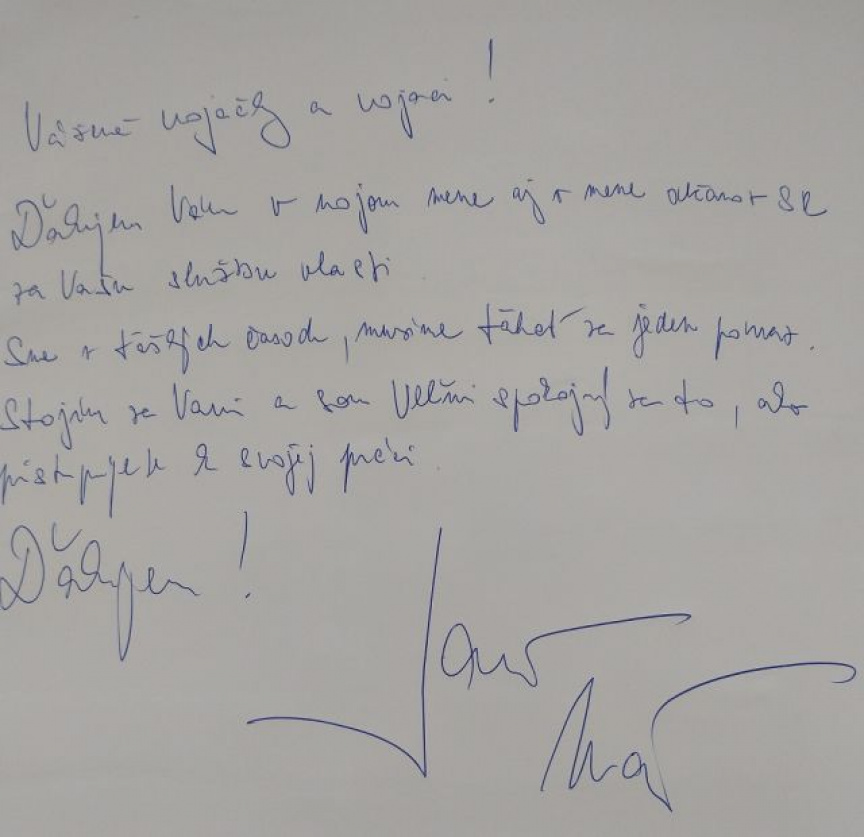 Vážené vojačky a vojaci !
Ďakujem Vám v mojom mene aj v mene občanov SR
za Vašu službu vlasti
Sme v ťažkých časoch, musíme ťahať za jeden povraz.
Stojím za Vami a som veľmi spokojný za to, ako
pristupujete k svojej práci
Ďakujem !